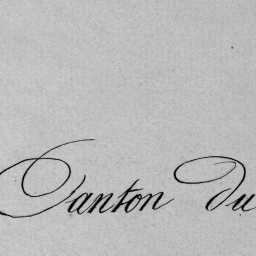 Canton Du